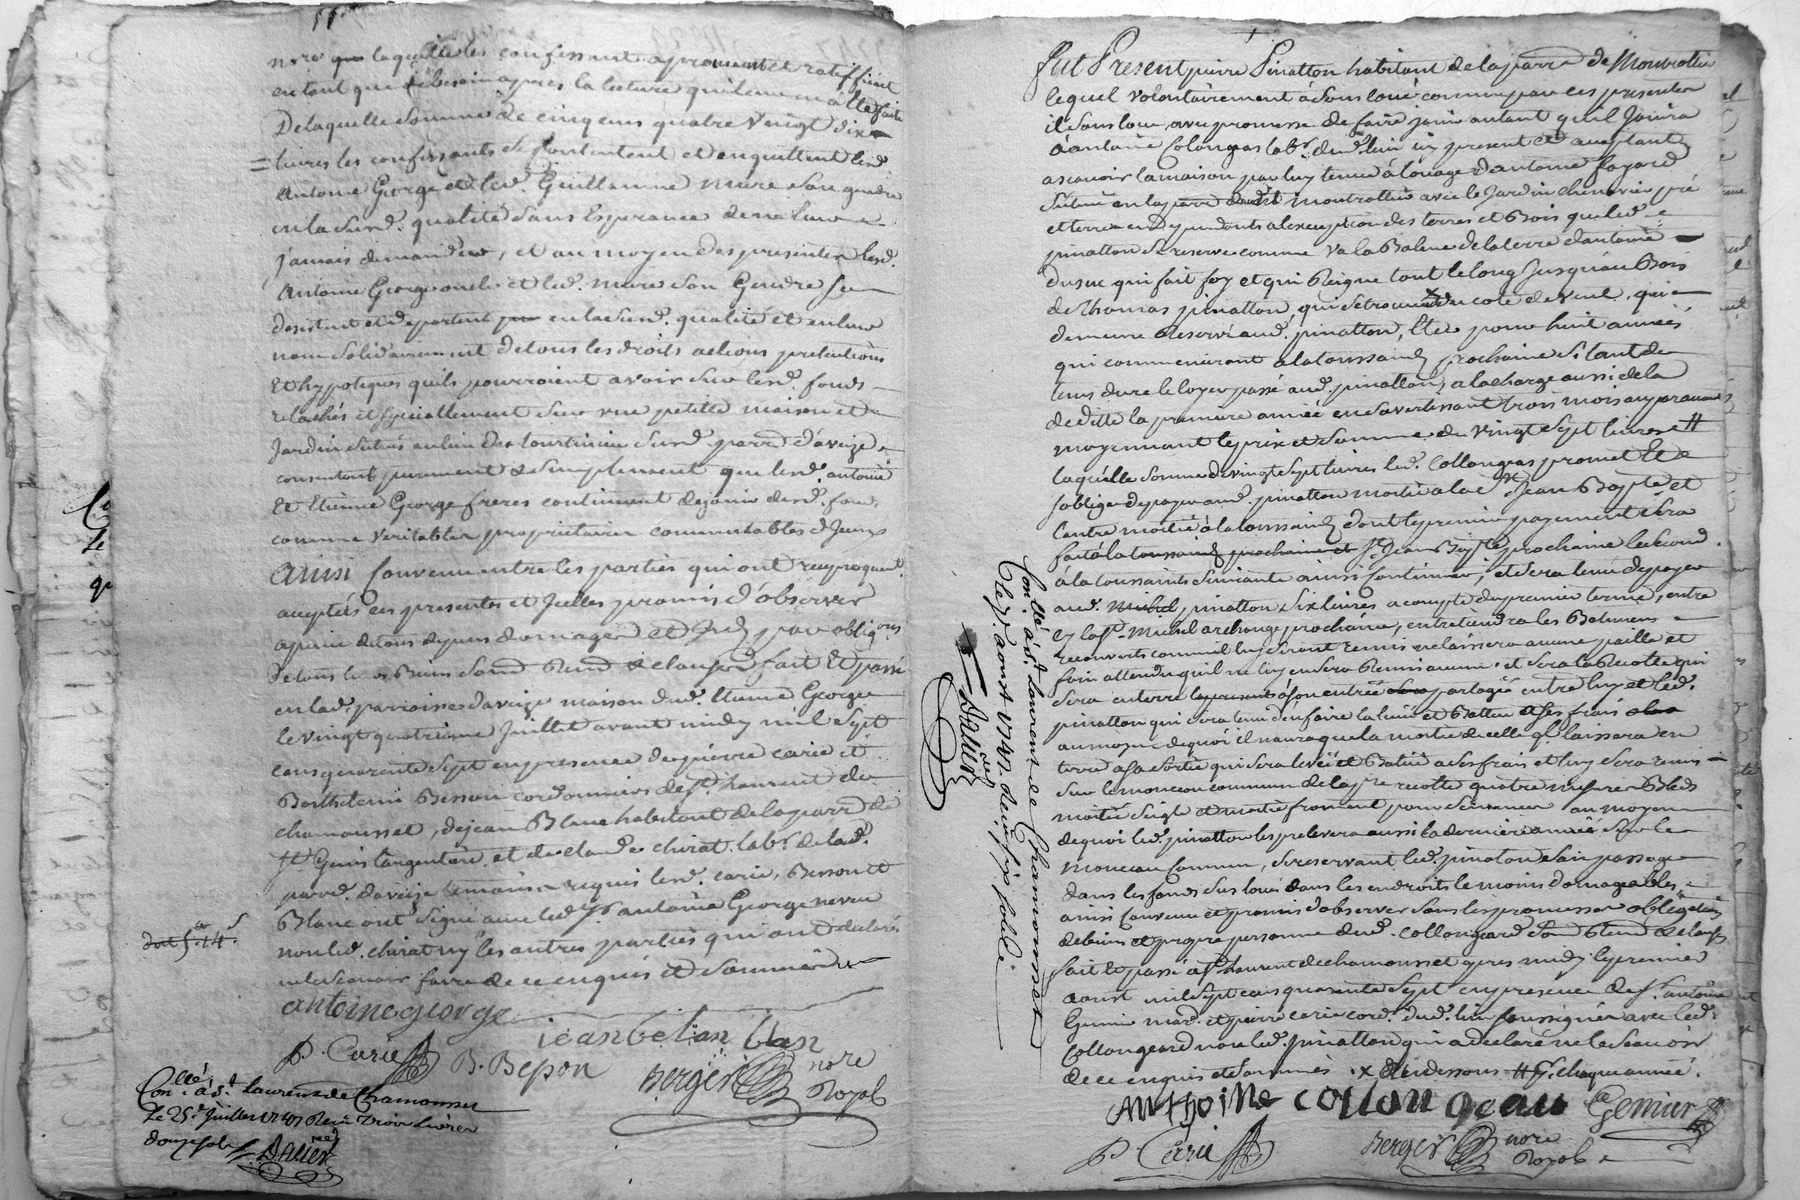 laquelle les confessants aprouvent et ratiffient
en tant que de besoin apres la lecture
De laquelle somme de cinq cens quatre vingt dix
livres les confessants se contentent et en quittent lesd.
Antoine George et led. Guillaume mure son gendre
en la susd. qualité sans Esperance de
jamais demander, et au moyen des presentes lesd.
Antoine George oncle et led. mure son Gendre se
desistent et departent en la susd. qualité et en leur
nom solidairement de tous les droits actions pretentions
et hypoteques quils pourroient avoir sur lesd. fonds
relachés et specialement sur une petite maison et
Jardin situés au lieu susd. parr. d'aveize
consentent purement et simplement que lesd. antoine
et Etienne George freres continuent de jouir desd. fonds
comme veritables proprietaires commutables d'Iceux
Ainsi convenu entre les parties qui ont reciproquem.
accepté ces presentes et Icelles promis d'observer
a peine de tous depens domages et par oblig.ons
De tous les Biens fait Et passé
en lad. parroisse d'aveize maison dud. Etienne George
le vingt quatrieme Juillet avant midy mil sept
cens quarante sept en presence de pierre carie et
Barthelemi Besson cordonniers de St. Laurent de
chamousset, de jean Blanc habitant de la parr. de
St. Genis l'argentiere, et de claude chirat lab.r de lad.
parr. d'aveize temoins requis lesd. carie, Besson et
Blanc ont signé avec led. antoine George neveu
non led. chirat ny les autres parties qui ont declaré
ne scavoir faire de ce enquis et sommés
antoine george
jean
P. Carie B. Besson Berger nore Royal
Con.llé à St. Laurens de Chamousset
Le 25.e Juillet 1747 Reçu Trois Livres
douze sols
Dalier
Fut Present pierre Pinatton habitant de la parr. de Montrottier
lequel volontairement a sous loué comme par ces presentes
il sous loue avec promesse de faire jouir autant quil Jouira
à antoine Colongeas lab.r dud. lieu icy present et acceptant
a scavoir la maison par luy tenue à louage d'antoine fayard
située en la parr. dud. montrottier avec le Jardin chenevier pré
et terres en dependants a l'exception des terres et Bois que led.
pinatton se reserve comme va la Balme de la terre d'antoine
qui fait foy et qui Reigne tout le long Jusqu'au Bois
de Thomas pinatton, qui se trouve du coté de vent, qui
demeure Reservé aud. pinatton, Et ce pour huit années
qui commenceront a la toussaints prochaine si tant de
tems dure le loyer passé aud. pinatton, a la charge aussi de la
deditte la premiere année en s'avertissant trois mois auparavant
moyennant le prix et somme de vingt sept livres
laquelle somme de vingt sept livres led. Collongeas promet Et
s'oblige de payer aud. pinatton moitié a la St. Jean Bapte et
l'autre moitié à la toussaints dont le premier payement sera
fait à la toussaints prochaine et St. Jean Bapte prochaine le second
à la toussaints suivante ainsi continuer, et sera tenu de payer
aud. Michel pinatton six livres a compte du premier terme, entre
cy la St. Michel archange prochaine, entretiendra les Batimens
recouverts comme luy seront remis ne laissera aucune paille et
foin attendu qu'il ne luy en sera Remis aucune et sera la Recolte qui
sera en terre a son entrée partagée entre luy et led.
pinatton qui sera tenu d'en faire la leve et Battre a ses frais
au moyen de quoi il n'aura que la moitié de celle qu'il laissera en
terre a sa sortie qui sera levée et Batue a ses frais et luy sera remis
sur le monceau commun de la p.re recolte quatre mesures Bleds
moitié seigle et moitié froment pour semence au moyen
de quoi led. pinatton les prelevera aussi la derniere année sur le
monceau Commun, se reservant led. pinatton son passage
dans les fonds sus loués dans les endroits le moins domageables
ainsi convenu et promis d'observer sous les promesses obligations
de biens et propre personne dud. Collongeard
fait Et passé a St. Laurent de chamousset apres midy le premier
aoust mil sept cens quarante sept en presence de Sr. antoine
Genier et pierre carie cord. dud. lieu soussignés avec led.
Collongeard non led. pinatton qui a declaré ne le scavoir
de ce enquis et sommés x au dessous # chaque année.
Anthoine collongeau Genier
P. Carie Berger nore Royal
Con.llé à St. Laurens de Chamousset
Le 7 aoust 1747. Reçu six sols
Dalier